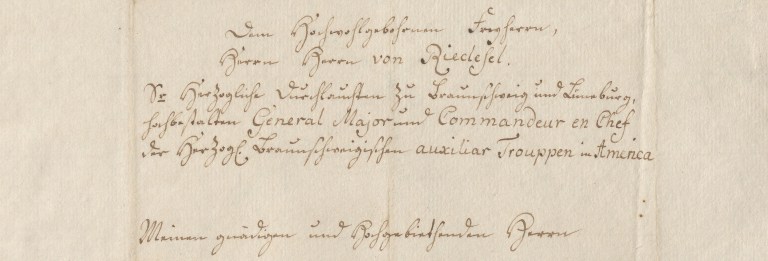 Dem Hochwohlgebohrnen Freyherrn,
Herrn Herrn von Riedesel.
Sr Herzogliche Durchlauchten zu Braunschweig und Lüneburg,
hochbestalten General Major und Commandeur en Chef
der Herzogl. Braunschweigischen auxiliar Trouppen in America
Meinen gnädigen und Hochgebiethenden Herrn